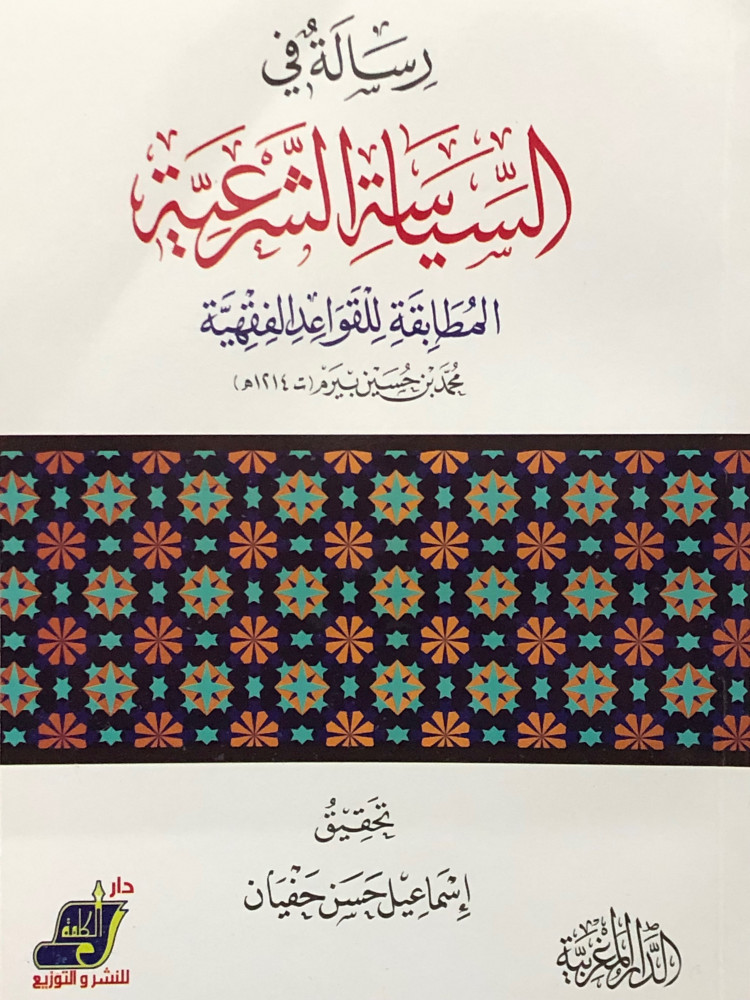 رِسَالَةٌ فِي
السِّيَاسَةِ الشَّرْعِيَّةِ
المُطَابِقَةِ لِلْقَوَاعِدِ الفِقْهِيَّةِ
مُحَمَّد بْنُ حُسَيْن بَيْرَم (ت ١٢١٤هـ)
تَحْقِيقُ
إِسْمَاعِيل حَسَن حَفْيَان
دار
الكلمة
للنشر و التوزيع
الدَّارُ المَغْرِبِيَّةُ